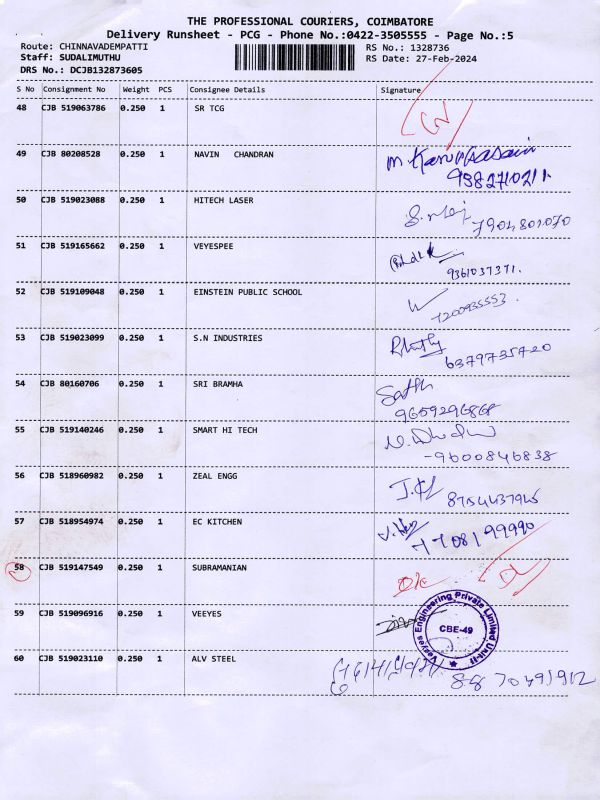 THE PROFESSIONAL COURIERS, COIMBATORE
Delivery Runsheet - PCG - Phone No.:0422-3505555 - Page No.:5
Route: CHINNAVADEMPATTI RS No.: 1328736
Staff: SUDALIMUTHU RS Date: 27-Feb-2024
DRS No.: DCJB132873605
S No Consignment No Weight PCS Consignee Details Signature
48 CJB 519063786 0.250 1 SR TCG
49 CJB 80208528 0.250 1 NAVIN CHANDRAN
9382710211.
50 CJB 519023088 0.250 1 HITECH LASER
7904801070
51 CJB 519165662 0.250 1 VEYESPEE
9361037371.
52 CJB 519109048 0.250 1 EINSTEIN PUBLIC SCHOOL
7200935553.
53 CJB 519023099 0.250 1 S.N INDUSTRIES
6379735720
54 CJB 80160706 0.250 1 SRI BRAMHA
55 CJB 519140246 0.250 1 SMART HI TECH
-9600846838
56 CJB 518960982 0.250 1 ZEAL ENGG
8754437945
57 CJB 518954974 0.250 1 EC KITCHEN
7708199990
58 CJB 519147549 0.250 1 SUBRAMANIAN
59 CJB 519096916 0.250 1 VEEYES
Veeyes Engineering Private Limited Unit-II
CBE-49
60 CJB 519023110 0.250 1 ALV STEEL